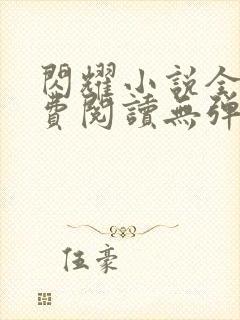 閃耀小說全
費閱讀無彈
伍豪